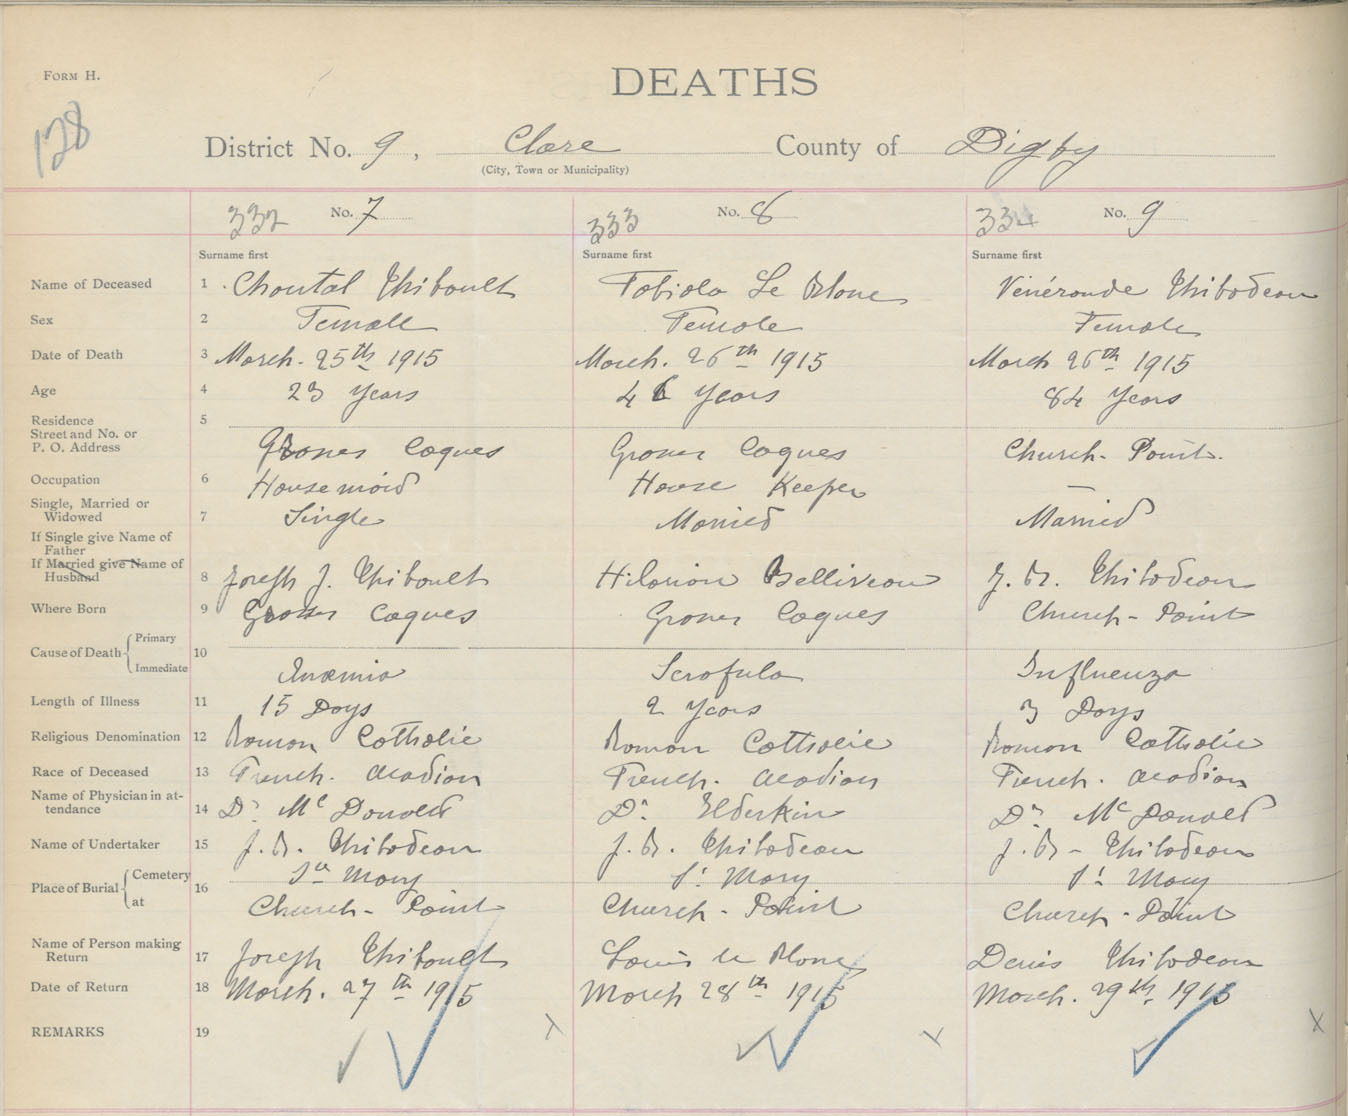 FORM H.
DEATHS
128
District No. 9, Clare County of Digby
(City, Town or Municipality)
332 No. 7 333 No. 8 334 No. 9
Surname first Surname first Surname first
Name of Deceased 1 Chantal Thibault Fabiola Le Blanc Vénérande Thibodeau
Sex 2 Female Female Female
Date of Death 3 March. 25th 1915 March. 26th 1915 March 26th 1915
Age 4 23 years 46 years 84 years
Residence 5
Street and No. or
P. O. Address Grosses Coques Grosses Coques Church-Point.
Occupation 6 House maid House Keeper —
Single, Married or
Widowed 7 Single Married Married
If Single give Name of
Father
If Married give Name of
Husband 8 Joseph J. Thibault Hilarion Belliveau J. B. Thibodeau
Where Born 9 Grosses Coques Grosses Coques Church-Point
Cause of Death { Primary 10
Immediate Anæmia Scrofula Influenza
Length of Illness 11 15 Days 2 years 3 Days
Religious Denomination 12 Roman Catholic Roman Catholic Roman Catholic
Race of Deceased 13 French. Acadian French. Acadian French. Acadian
Name of Physician in at-
tendance 14 Dr Mc Donald Dr Elderkin Dr Mc Donald
Name of Undertaker 15 J. B. Thibodeau J. B. Thibodeau J. B- Thibodeau
Place of Burial { Cemetery 16 St Mary St Mary St Mary
at Church-Point Church-Point Church-Point
Name of Person making
Return 17 Joseph Thibault Louis le Blanc Denis Thibodeau
Date of Return 18 March. 27th 1915 March 28th 1915 March. 29th. 1915
REMARKS 19 x x x